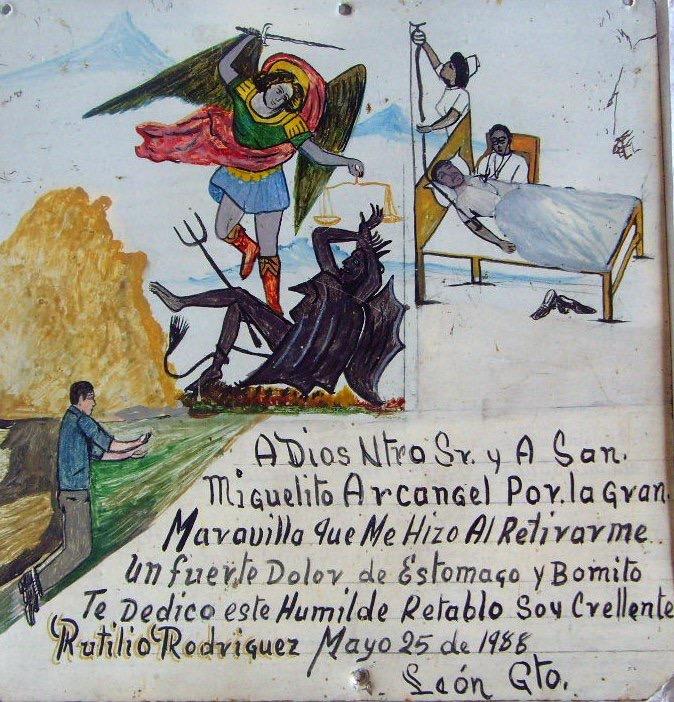 A Dios Ntro Sr. y A San.
Miguelito Arcangel Por. la Gran.
Maravilla que Me Hizo Al Retirarme
un fuerte Dolor de Estomago y Bomito
Te Dedico este Humilde Retablo Soy Crellente
Rutilio Rodriguez Mayo 25 de 1988
León Gto.